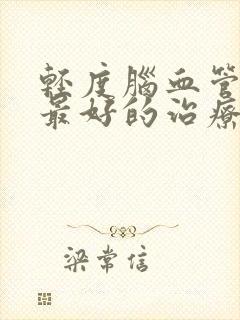 輕度腦血管
最好的治療
梁常信